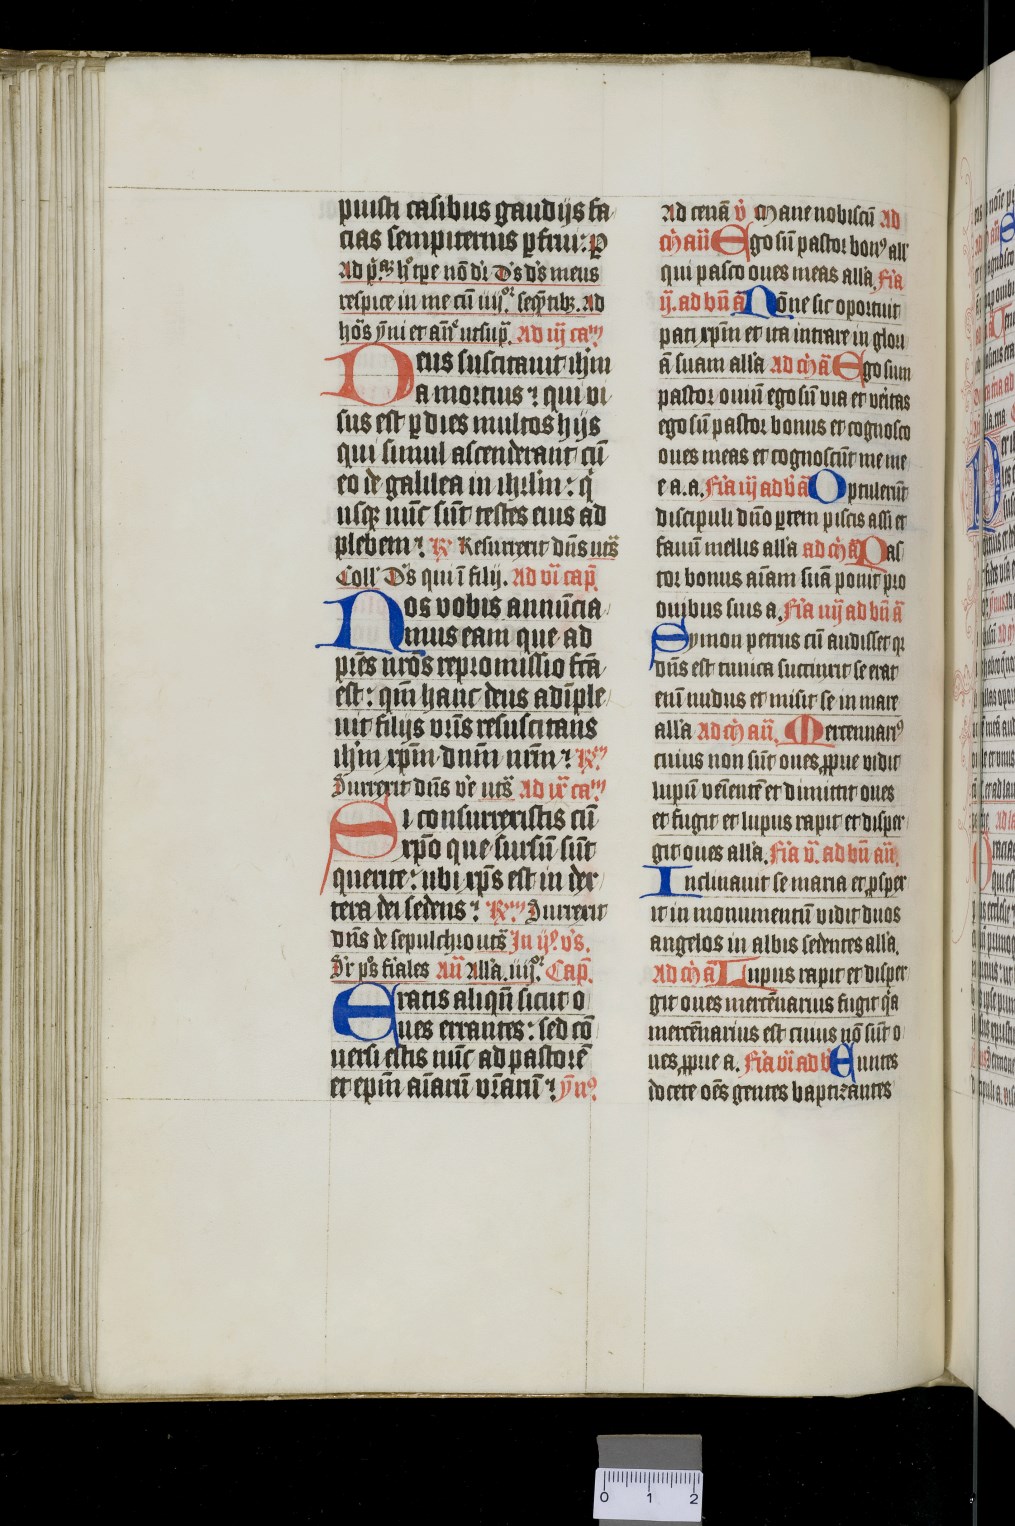 puisti casibus gaudijs fa
cias sempiternis ꝑfrui: ꝑ
Ad p̄ꝫ hͦ tꝑe nō dr̄ D's d's meus
respice in me cū iiijoꝛ seqn̄tibꝫ. Ad
hōs ym̄ et an̄e utsup̄. Ad iij cam
Deus suscitauit ihm̄
a moꝛtuis ⁊ qui vi
sus est ꝑ dies multos hijs
qui simul ascenderant cū
eo de galilea in ihrlm̄: q̄
usqꝫ nūc sūt testes eius ad
plebem ⁊ R̄ Resurrexit dn̄s uts̄
Coll' D's qui ī filij. Ad vi cap̄
Nos vobis annūcia
mus eam que ad
pr̄es nr̄os repromissio fc̄a
est: qm̄ hanc deus adīple
uit filijs vr̄is resuscitans
ihm̄ xp̄m dnm̄ nrm̄ ⁊ R̄m
Surrexit dn̄s ve uts̄ Ad ix cam
Si consurrexistis cū
xp̄o que sursū sūt
querite: ubi xp̄s est in dex
tera dei sedens ⁊ R̄m Surrexit
dn̄s de sepulchro uts̄ In ijͦ. v's.
Sr̄ ps̄ fi'ales Añ Alla. iiijoꝛ Cap̄.
Eratis aliqn̄ sicut o
ues errantes: sed cō
uersi estis nūc ad pastoꝛē
et epm̄ aīarū vr̄arū ⁊ ym̄9
Ad cenā v̄ Mane nobiscū Ad
m̄ añ Ego sū pastoꝛ bon9 all'
qui pasco oues meas alla. Fi'a
ij. ad bn̄ ā Nōne sic opoꝛtuit
pati xpm̄ et ita intrare in glori
ā suam alla Ad m̄ ā Ego sum
pastoꝛ ouiū ego sū via et veritas
ego sū pastoꝛ bonus et cognosco
oues meas et cognoscūt me me
e a.a. Fi'a iij ad b̄ ā Optulerūt
discipuli dn̄o ꝑtem piscis assi et
fauū mellis alla ad m̄ ā Pas
toꝛ bonus aīam suā ponit pro
ouibus suis a. Fi'a iiij ad bn̄ ā
Symon petrus cū audisset qꝛ
dn̄s est tunica succinxit se erat
enī nudus et misit se in mare
alla Ad m̄ añ. Mercennari9
cuius non sūt oues ꝓprie vidit
lupū veniētē et dimittit oues
et fugit et lupus rapit et disper
git oues alla. Fi'a v. ad bn̄ añ.
Inclinauit se maria et ꝓsper
it in monumentū vidit duos
angelos in albis sedentes alla.
Ad m̄ ā Lupus rapit et disper
git oues mercēnarius fugit q̄a
mercēnarius est cuius nō sūt o
ues ꝓprie a. Fi'a vi ad b Euntes
docete oēs gentes baptizantes